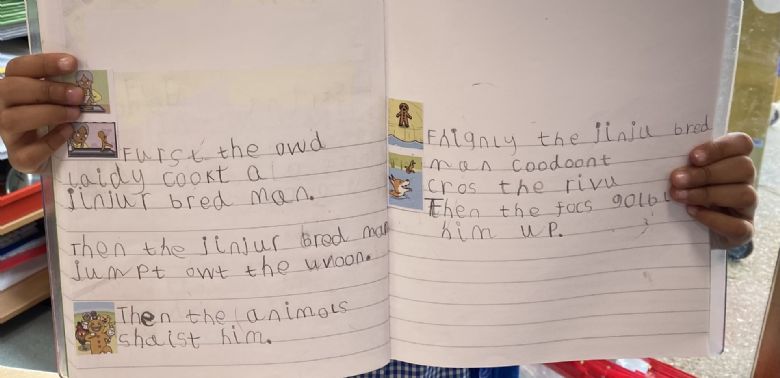 Furst the owd
laidy cookt a
jinjur bred man.
Then the jinjur bred man
jumpt owt the uvoon.
Then the animols
shaist him.
Fhignly the jinju bred
man coodoont
cros the rivu
Then the focs
him up.